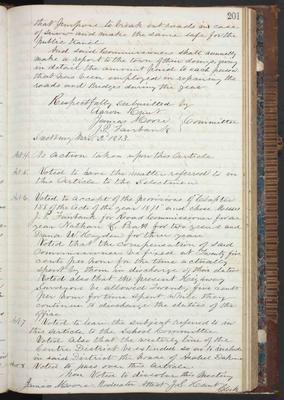 201
that purpose to break out roads in cases
of snow and make the same safe for the
public travel.
And said Commissioners shall annually
make a report to the town of their doings giving
in detail the amount paid to each person
that has been employed in repairing the
roads and bridges during the year
Respectfully submitted by
Aaron Hunt
James Moore } Committee
J. P. Fairbank
Sudbury Mar. 3d 1873.
Art 4. No action taken upon this article
Art 5. Voted to have the matter referred to in
this Article to the Selectmen
Art 6. Voted to accept of the provisions of Chapter
158 of the acts of the year 1871 and chose Messrs
J. P. Fairbank for Road Commissioner for one
year Nathan L. Pratt for two years and
W. Hayden for three years
Voted that the Compensation of said
Commissioners be fixed at Twenty five
cents per hour for the time actually
spent by them in discharge of their duties
Voted also that the present Highway
Surveyors be allowed Twenty five cents
per hour for time spent while they
continue to discharge the duties of the
office
Art 7 Voted to leave the subject referred to in
this article to the School Committee
Voted Also that the westerly line of the
Centre District be extended so as to include
in said District the house of
Art 8 Voted to pass over this Article
Voted to dissolve this Meeting
James Moore Moderator Attest J. S. Hunt
Clerk